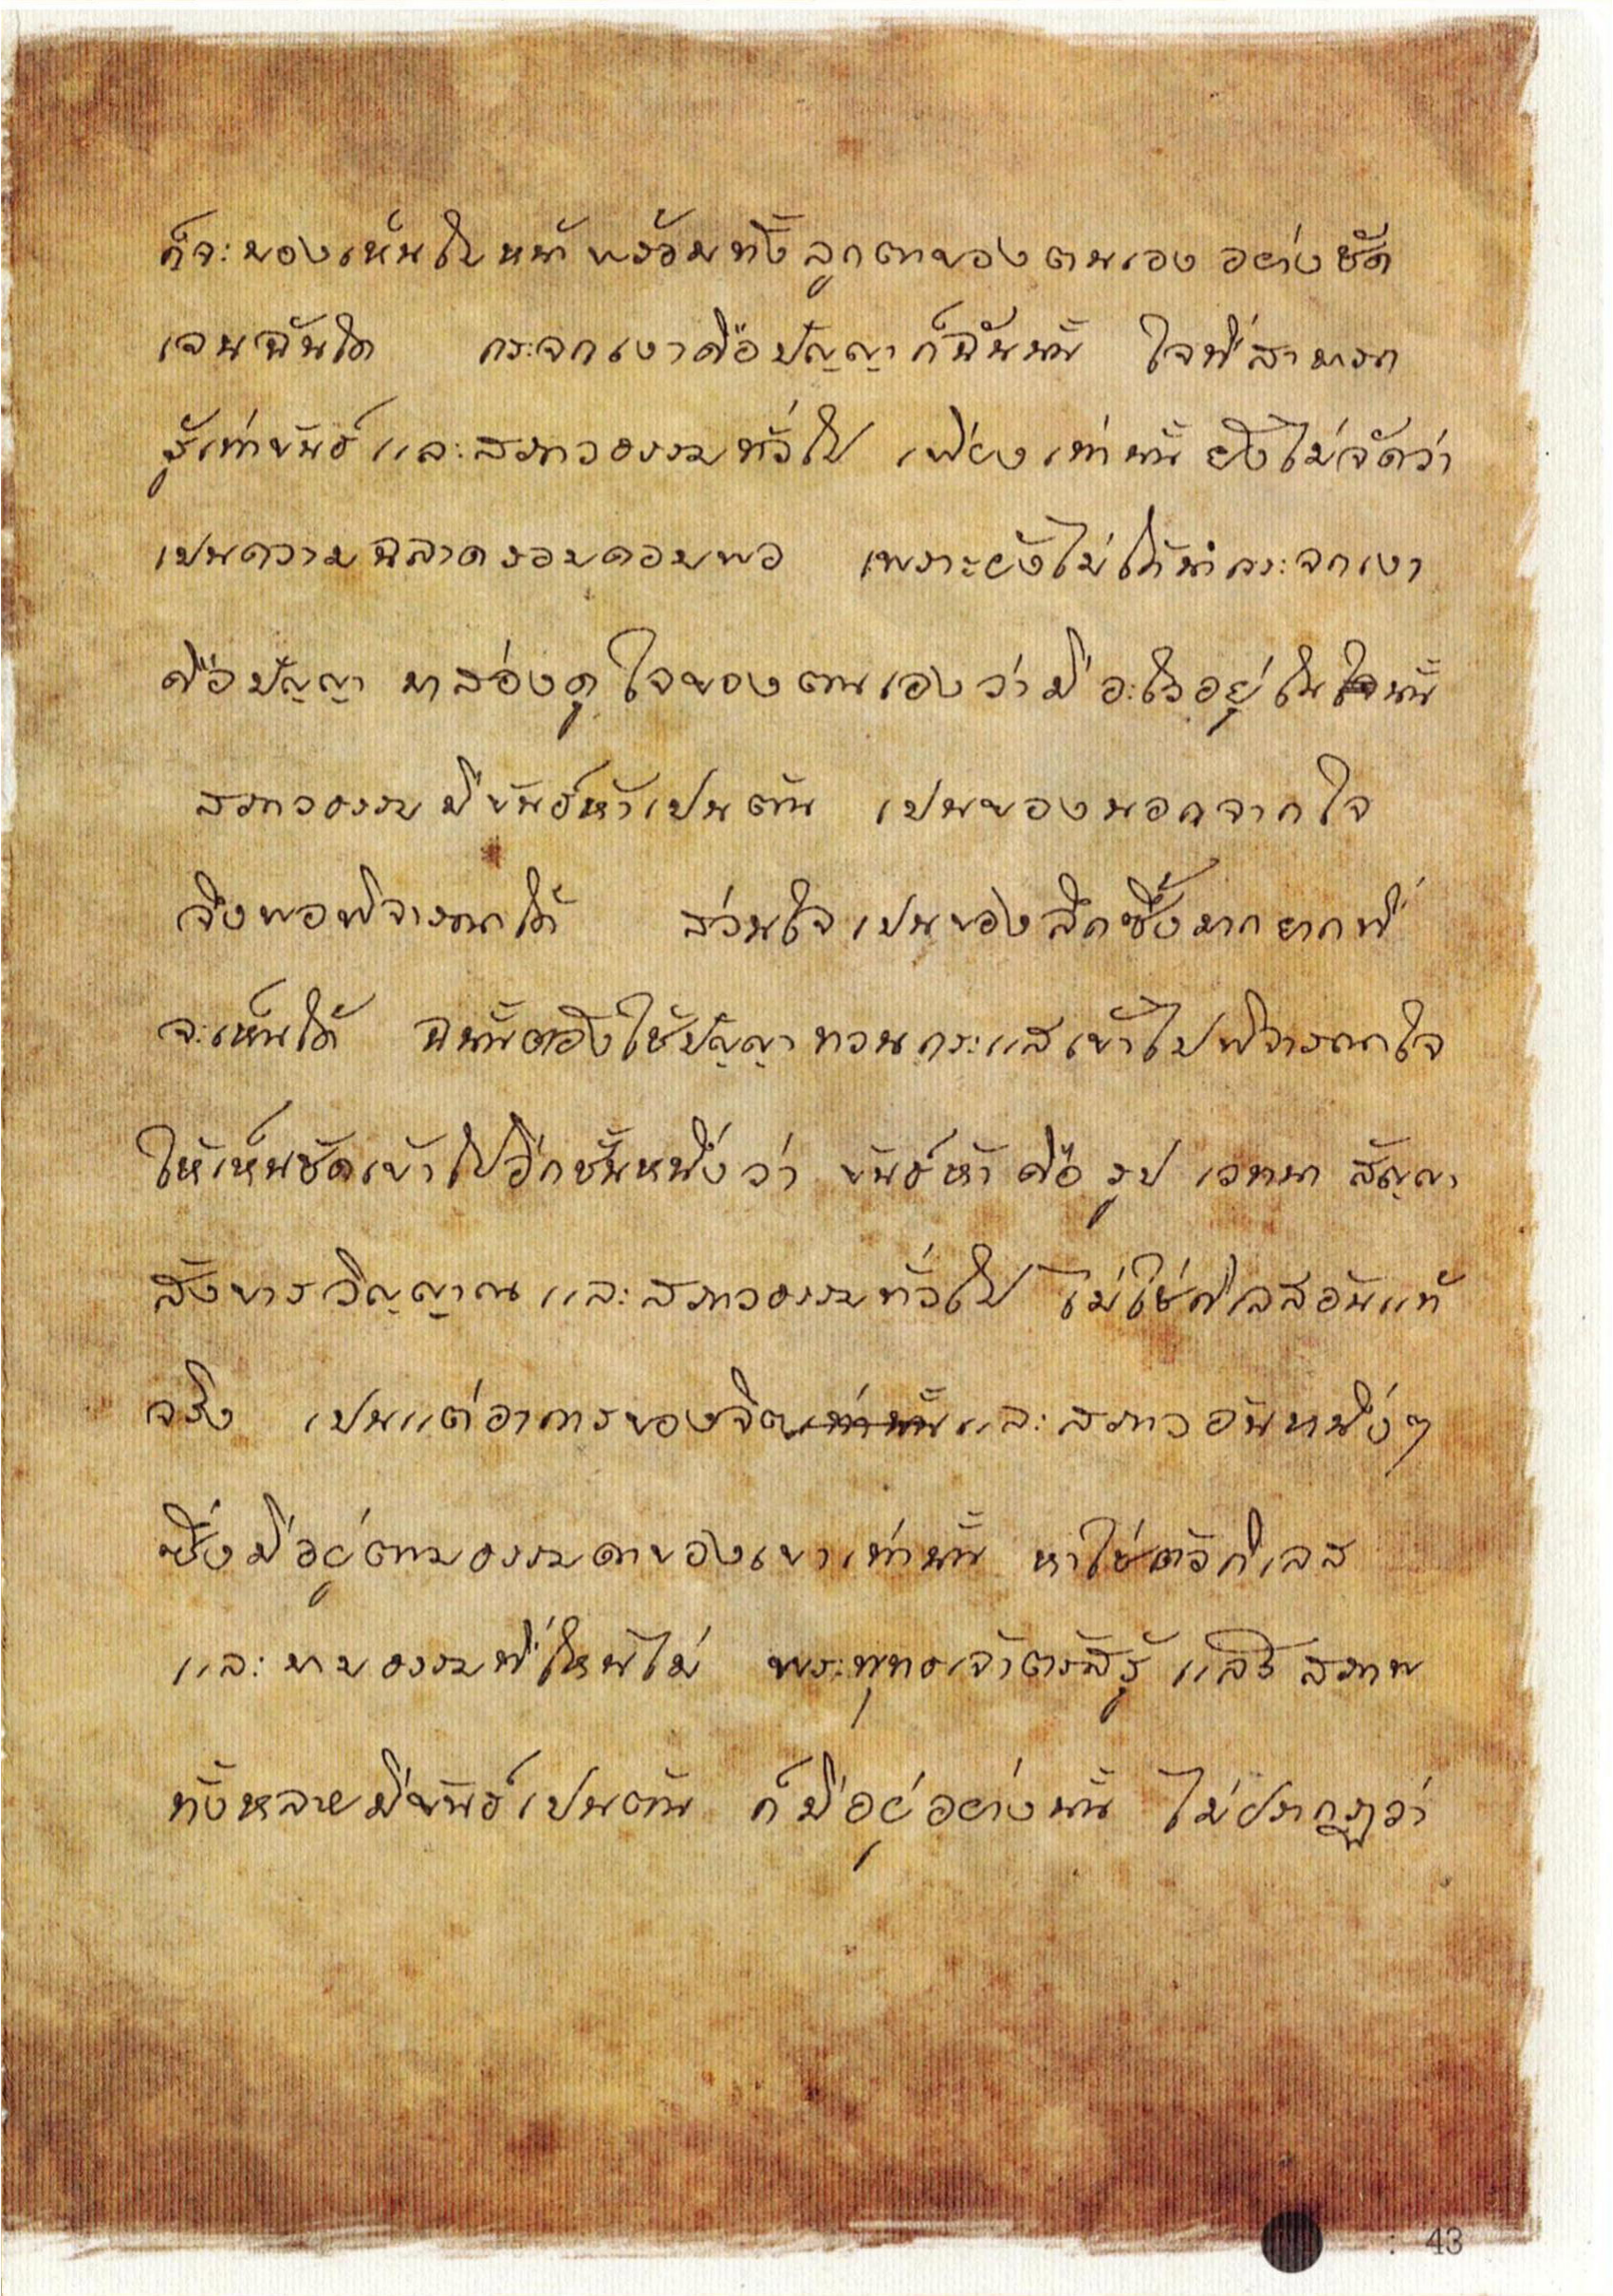 ก็จะมองเห็นใบหน้าพร้อมทั้งลูกตาของตนเองอย่างชัด
เจนฉันใด กระจกเงาคือปัญญาก็ฉันนั้น ใจที่สามารถ
รู้เท่าขันธ์และสภาวธรรมทั่วไป เพียงเท่านั้นยังไม่จัดว่า
เปนความฉลาดรอบคอบพอ เพราะยังไม่ได้นำกระจกเงา
คือปัญญา มาส่องดูใจของตนเองว่ามีอะไรอยู่ในใจนั้น
สภาวธรรมมีขันธ์ห้าเปนต้น เปนของนอกจากใจ
จึงพอพิจารณาได้ ส่วนใจเปนของลึกซึ้งมากยากที่
จะเห็นได้ ฉนั้นต้องใช้ปัญญาทวนกระแสเข้าไปพิจารณาใจ
ให้เห็นชัดเข้าไปอีกชั้นหนึ่งว่า ขันธ์ห้าคือ รูป เวทนา สัญญา
สังขาร วิญญาณ และสภาวธรรมทั่วไป ไม่ใช่กิเลสอันแท้
จริง เปนแต่อาการของจิตเท่านั้นและสภาวอันหนึ่งๆ
ซึ่งมีอยู่ตามธรรมดาของเขาเท่านั้น หาใช่ตัวกิเลส
และบาปธรรมที่ไหนไม่ พระพุทธเจ้าตรัสรู้แล้ว สภาพ
ทั้งหลายมีขันธ์เปนต้น ก็มีอยู่อย่างนั้น ไม่ปรากฏว่า
43